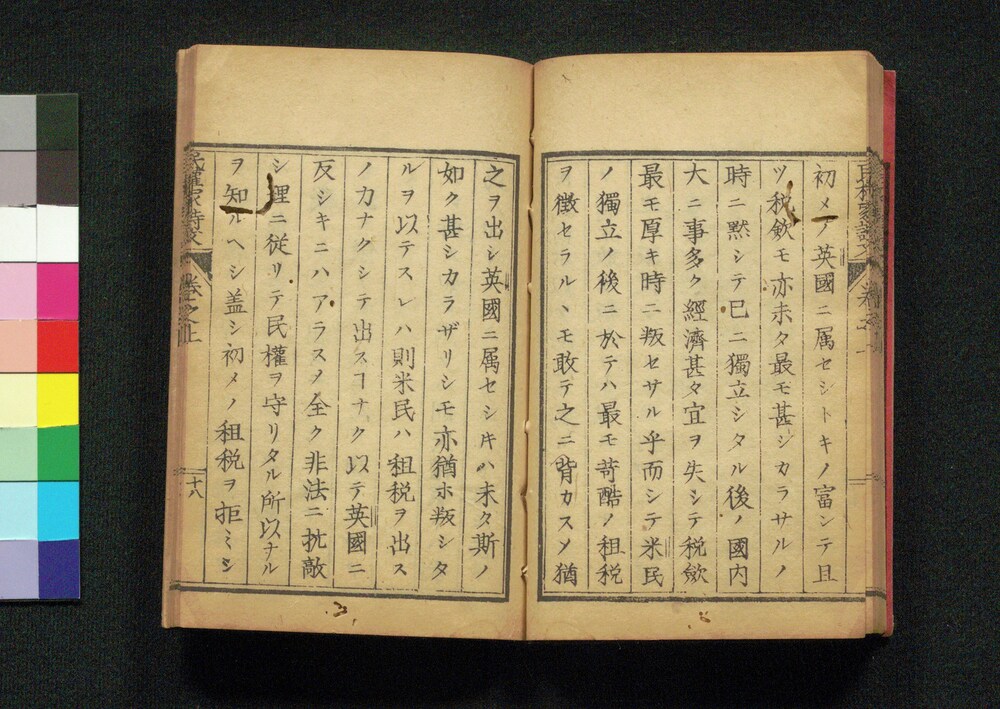 初メテ英國ニ属セシトキノ富ンテ且
ツ税斂モ亦未タ最モ甚シカラサルノ
時ニ黙シテ已ニ獨立シタル後ノ國内
大ニ事多ク經濟甚タ宜ヲ失シテ税斂
最モ厚キ時ニ叛セサル乎而シテ米民
ノ獨立ノ後ニ於テハ最モ苛酷ノ租税
ヲ徴セラルヽモ敢テ之ニ背カスメ猶
之ヲ出シ英國ニ属セシ𪜈ハ未タ斯ノ
如ク甚シカラザリシモ亦猶ホ叛シタ
ルヲ以テスレハ則米民ハ租税ヲ出ス
ノ力ナクシテ出スヿナク以テ英國ニ
反シキニハアラスメ全ク非法ニ抗敵
シ理ニ従リテ民權ヲ守リタル所以ナル
ヲ知ルヘシ盖シ初メノ租税ヲ拒ミシ
民權家詩文
卷之上
二十八